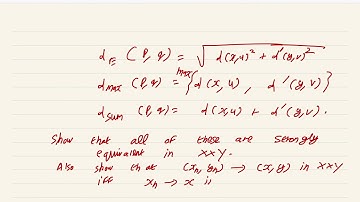 d_E (p, q) = √(d(x,u)² + d'(y,v)²)
d_max (p, q) = max {d(x, u), d'(y, v)}
d_sum (p, q) = d(x, u) + d'(y, v).
Show that all of these are strongly
equivalent in X×Y.
Also show that (xₙ, yₙ) → (x, y) in X×Y
iff xₙ → x